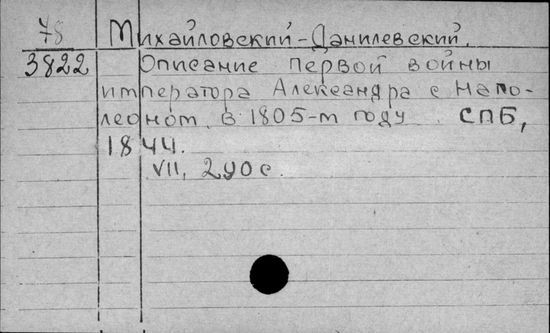 78
3822
Михайловский-Данилевский.
Описание первой войны
императора Александра с Напо-
леоном в 1805-м году. СПБ,
1844.
VII, 290 с.